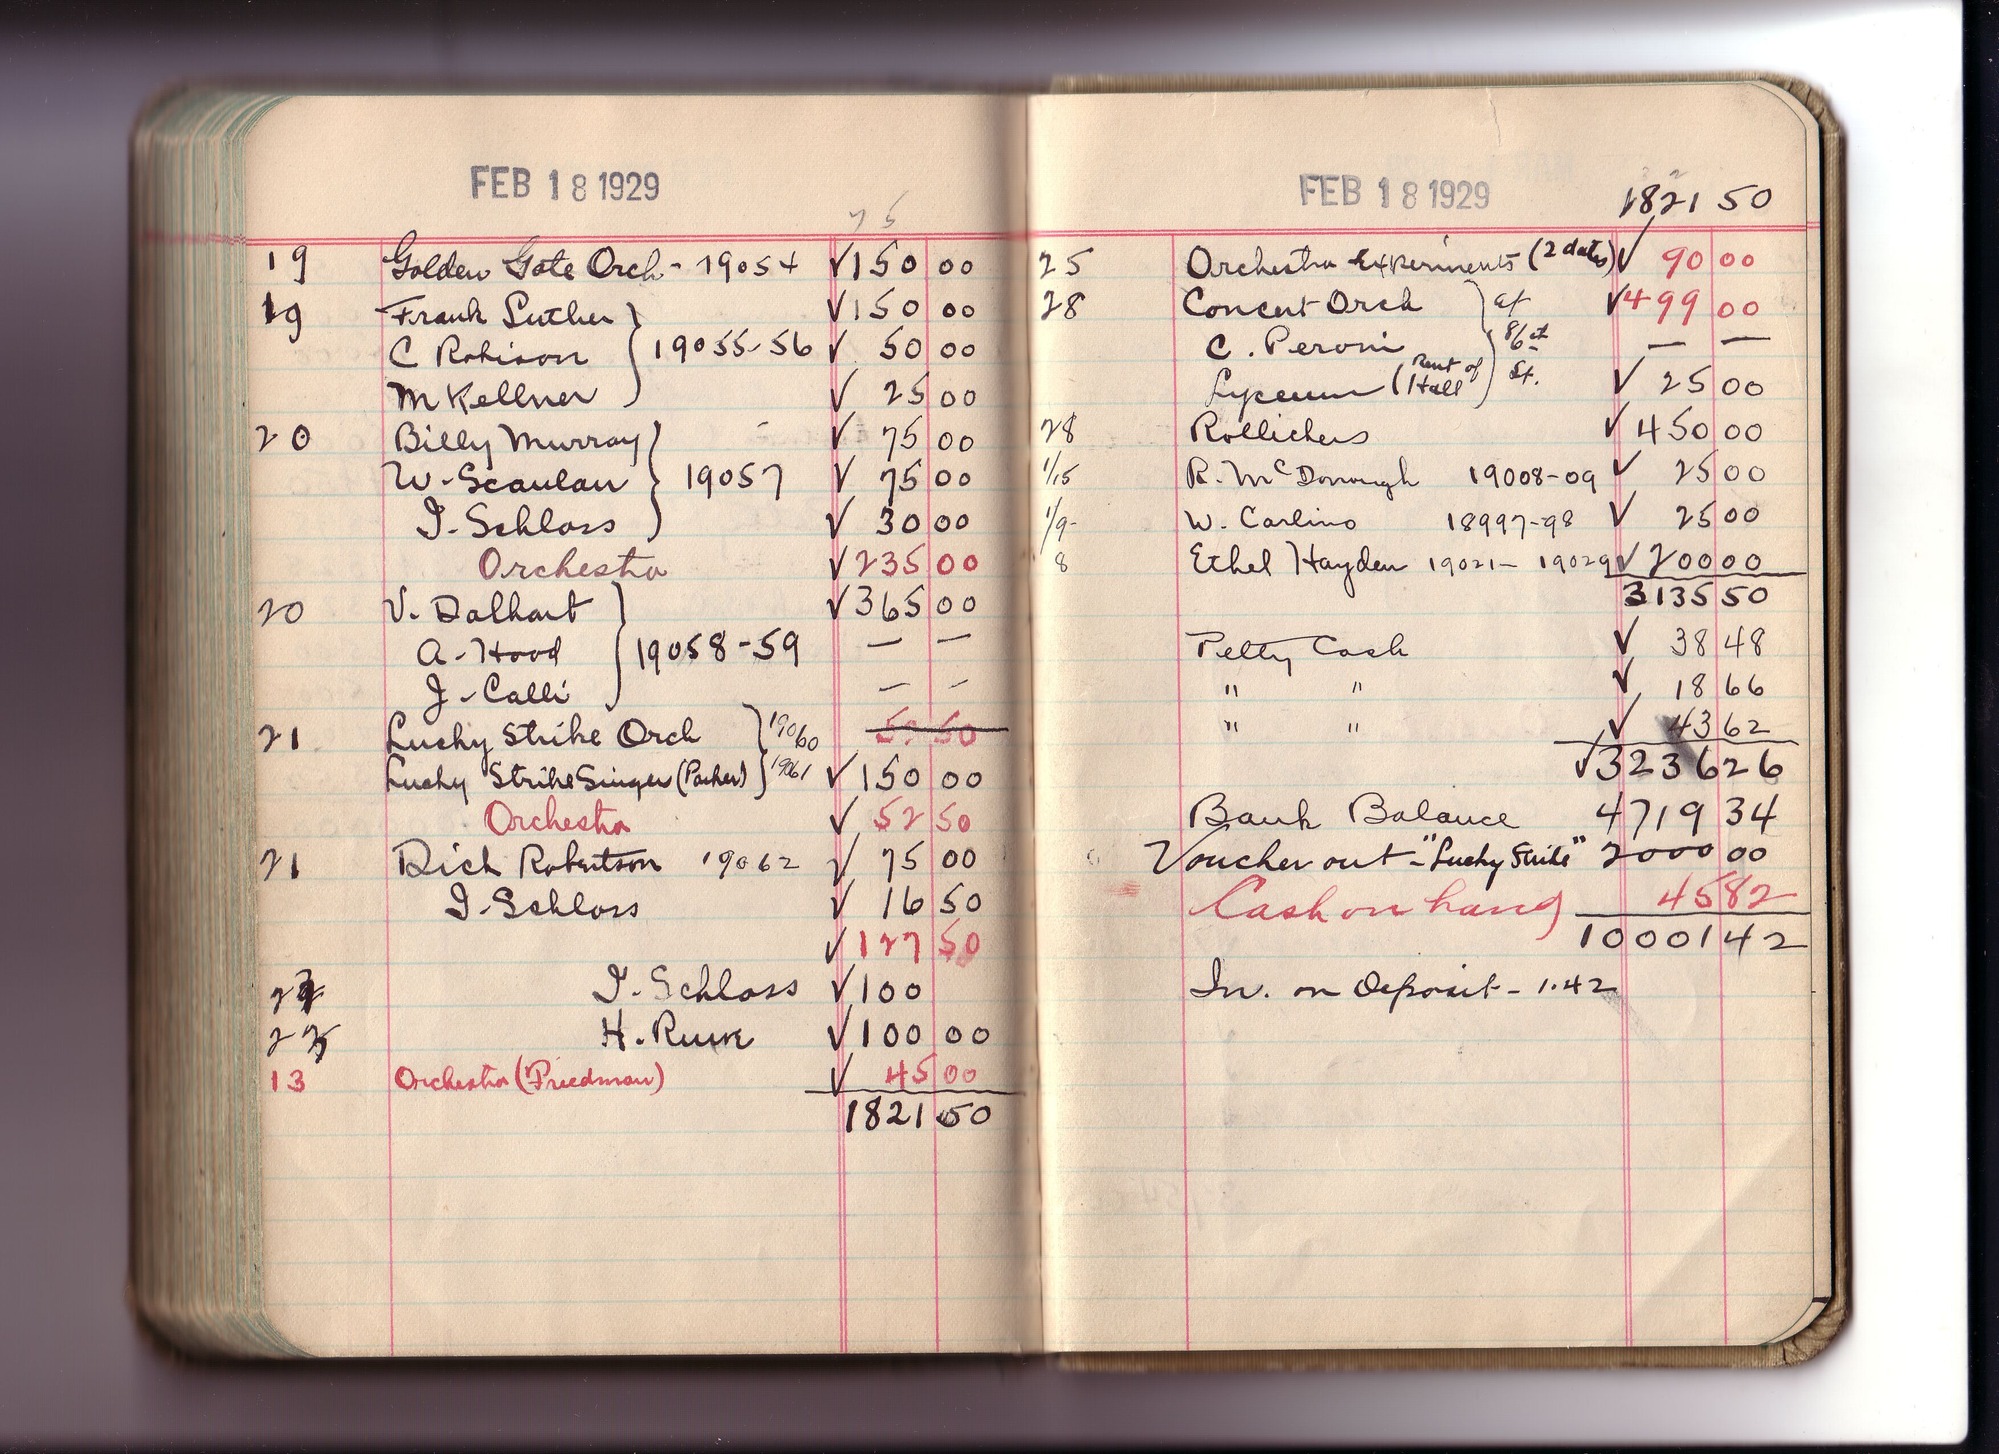 FEB 18 1929
75
19 Golden Gate Orch - 19054 √150 00
19 Frank Luther √150 00
C Robison 19055-56 √ 50 00
M Kellner √ 25 00
20 Billy Murray √ 75 00
W. Scanlan 19057 √ 75 00
I. Schloss √ 30 00
Orchestra √235 00
20 V. Dalhart √365 00
A. Hood 19058-59 — —
J. Calli — —
21 Lucky Strike Orch 19060 52 50
Lucky Strike Singer (Parker) 19061 √150 00
Orchestra √ 52 50
21 Dick Robertson 19062 √ 75 00
I. Schloss √ 16 50
√127 50
I. Schloss √100
H. Ruvk √100 00
13 Orchestra (Friedman) √ 45 00
1821 50
FEB 18 1929
1821 50
25 Orchestra Experiments (2 dates) √ 90 00
28 Concert Orch at √499 00
C. Peroni 86 st — —
Lyceum (Rent of Hall) St. √ 25 00
28 Rollickers √ 450 00
1/15 R. McDonough 19008-09 √ 25 00
1/9- W. Carlino 18997-98 √ 25 00
8 Ethel Hayden 19021- 19029 √ 200 00
3135 50
Petty Cash √ 38 48
" " √ 18 66
" " √ 43 62
√3236 26
Bank Balance 4719 34
Voucher out - "Lucky Strike" 2000 00
Cash on hand 45 82
10001 42
In. on Deposit - 1.42